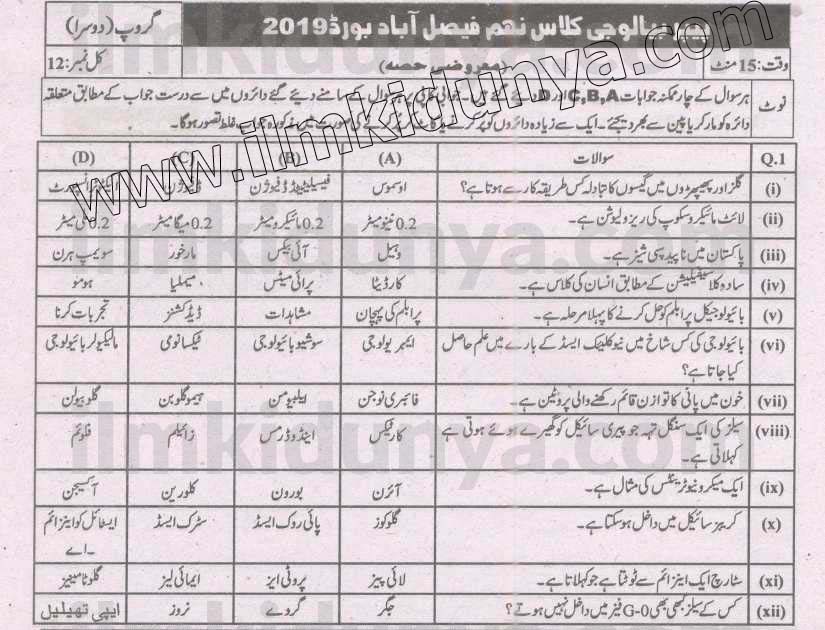 پیپر بیالوجی کلاس نہم فیصل آباد بورڈ 2019
گروپ (دوسرا)
وقت: 15 منٹ (معروضی حصہ) کل نمبر: 12
نوٹ ہر سوال کے چار ممکنہ جوابات C,B,A اور D دئیے گئے ہیں۔ جوابی کاپی پر ہر سوال کے سامنے دیے گئے دائروں میں سے درست جواب کے مطابق متعلقہ
دائرہ کو مارکر یا پین سے بھر دیجئے۔ ایک سے زیادہ دائروں کو پُر کرنے کی صورت میں مذکورہ جواب غلط تصور ہو گا۔
Q.1 سوالات (A) (B) (C) (D)
(i) گلز اور پھیپھڑوں میں گیسوں کا تبادلہ کس طریقہ کار سے ہوتا ہے؟ اوسموس فیسیلیٹیٹڈ ڈفیوژن ڈفیوژن ایکٹو ٹرانسپورٹ
(ii) لائٹ مائیکروسکوپ کی ریزولیوشن ہے۔ 0.2 نینومیٹر 0.2 مائیکرومیٹر 0.2 میگا میٹر 0.2 ملی میٹر
(iii) پاکستان میں ناپید سپی شیز ہے۔ وہیل آئی بیکس مارخور سویمپ ہرن
(iv) سادہ کلاسیفیکیشن کے مطابق انسان کی کلاس ہے۔ کارڈیٹا پرائی میٹس میملیا ہومو
(v) بائیولوجیکل پرابلم کو حل کرنے کا پہلا مرحلہ ہے۔ پرابلم کی پہچان مشاہدات ڈیڈکشنز تجربات کرنا
(vi) بائیولوجی کی کس شاخ میں نیوکلیئک ایسڈ کے بارے میں علم حاصل ایمبریولوجی سوشیوبائیولوجی ٹیکسانومی مالیکیولر بائیولوجی
کیا جاتا ہے؟
(vii) خون میں پانی کا توازن قائم رکھنے والی پروٹین ہے۔ فائبری نوجن ایلبیومن ہیموگلوبن گلوبیولن
(viii) سیلز کی ایک سنگل تہہ جو پیری سائیکل کو گھیرے ہوئے ہوتی ہے کارٹیکس اینڈوڈرمس زائیلم فلوئم
کہلاتی ہے۔
(ix) ایک میکرونیوٹرینٹس کی مثال ہے۔ آئرن بورون کلورین آکسیجن
(x) کریبز سائیکل میں داخل ہو سکتا ہے۔ گلوکوز پائی روک ایسڈ سٹرک ایسڈ ایسٹائل کو اینزائم
۔اے
(xi) سٹارچ ایک اینزائم سے ٹوٹتا ہے جو کہلاتا ہے۔ لائی پیز پروٹی ایز ایمائی لیز گلوٹامینیز
(xii) کس کے سیلز کبھی بھی G-0 فیز میں داخل نہیں ہوتے؟ جگر گردے نروز ایپی تھیلیل
www.ilmkidunya.com
ilmkidunya.com
ilmkidunya.com
ilmkidunya.com